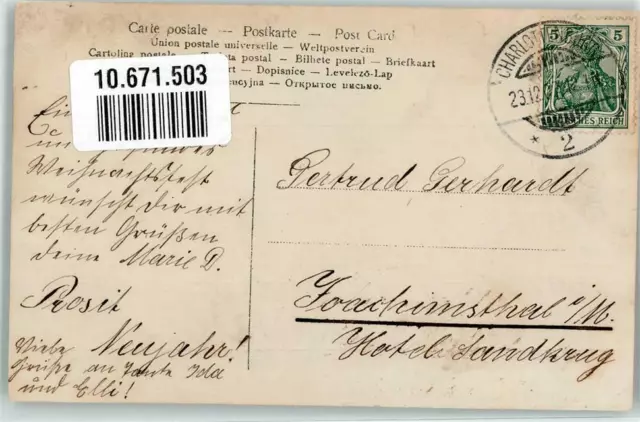 Carte postale — Postkarte — Post Card
Union postale universelle — Weltpostverein
Cartolina postale — postal — Bilhete postal — Briefkaart
— Dopisnice — Levelező-Lap
— Открытое письмо.
10.671.503
CHARLOTTENBURG
23.12
* 2
5 5
DEUTSCHES REICH
Ein
Weihnachtsfest
wünscht Dir mit
besten Grüßen
deine Marie D.
Prosit
Neujahr!
Viele
Grüße an Tante Ida
und Elli!
Gertrud Gerhardt
Joachimsthal i/M.
Hotel Sandkrug